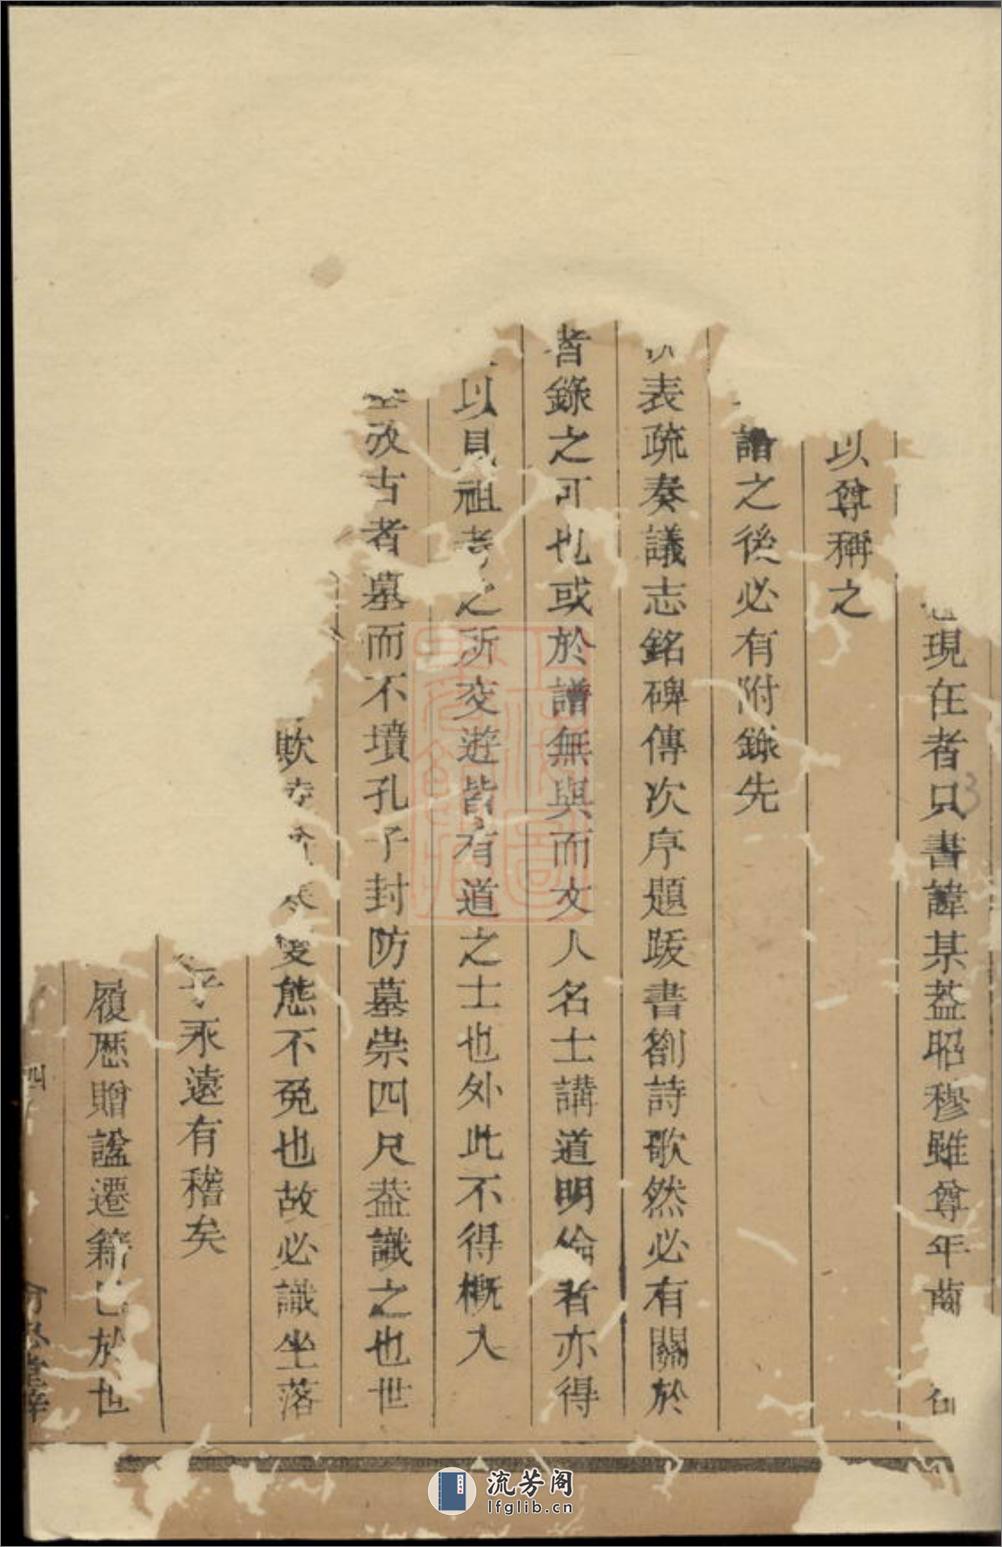 現在者只書諱某葢昭穆雖尊年齒
以尊稱之
譜之後必有附錄先
表疏奏議志銘碑傳次序題跋書劄詩歌然必有關於
者錄之可也或於譜無與而文人名士講道明倫者亦得
以見祖考之所交遊皆有道之士也外此不得概入
攷古者墓而不墳孔子封防墓崇四尺葢識之也世
變態不免也故必識坐落
永遠有稽矣
履歷贈謚遷籍已於世
四
流芳阁
lfglib.cn